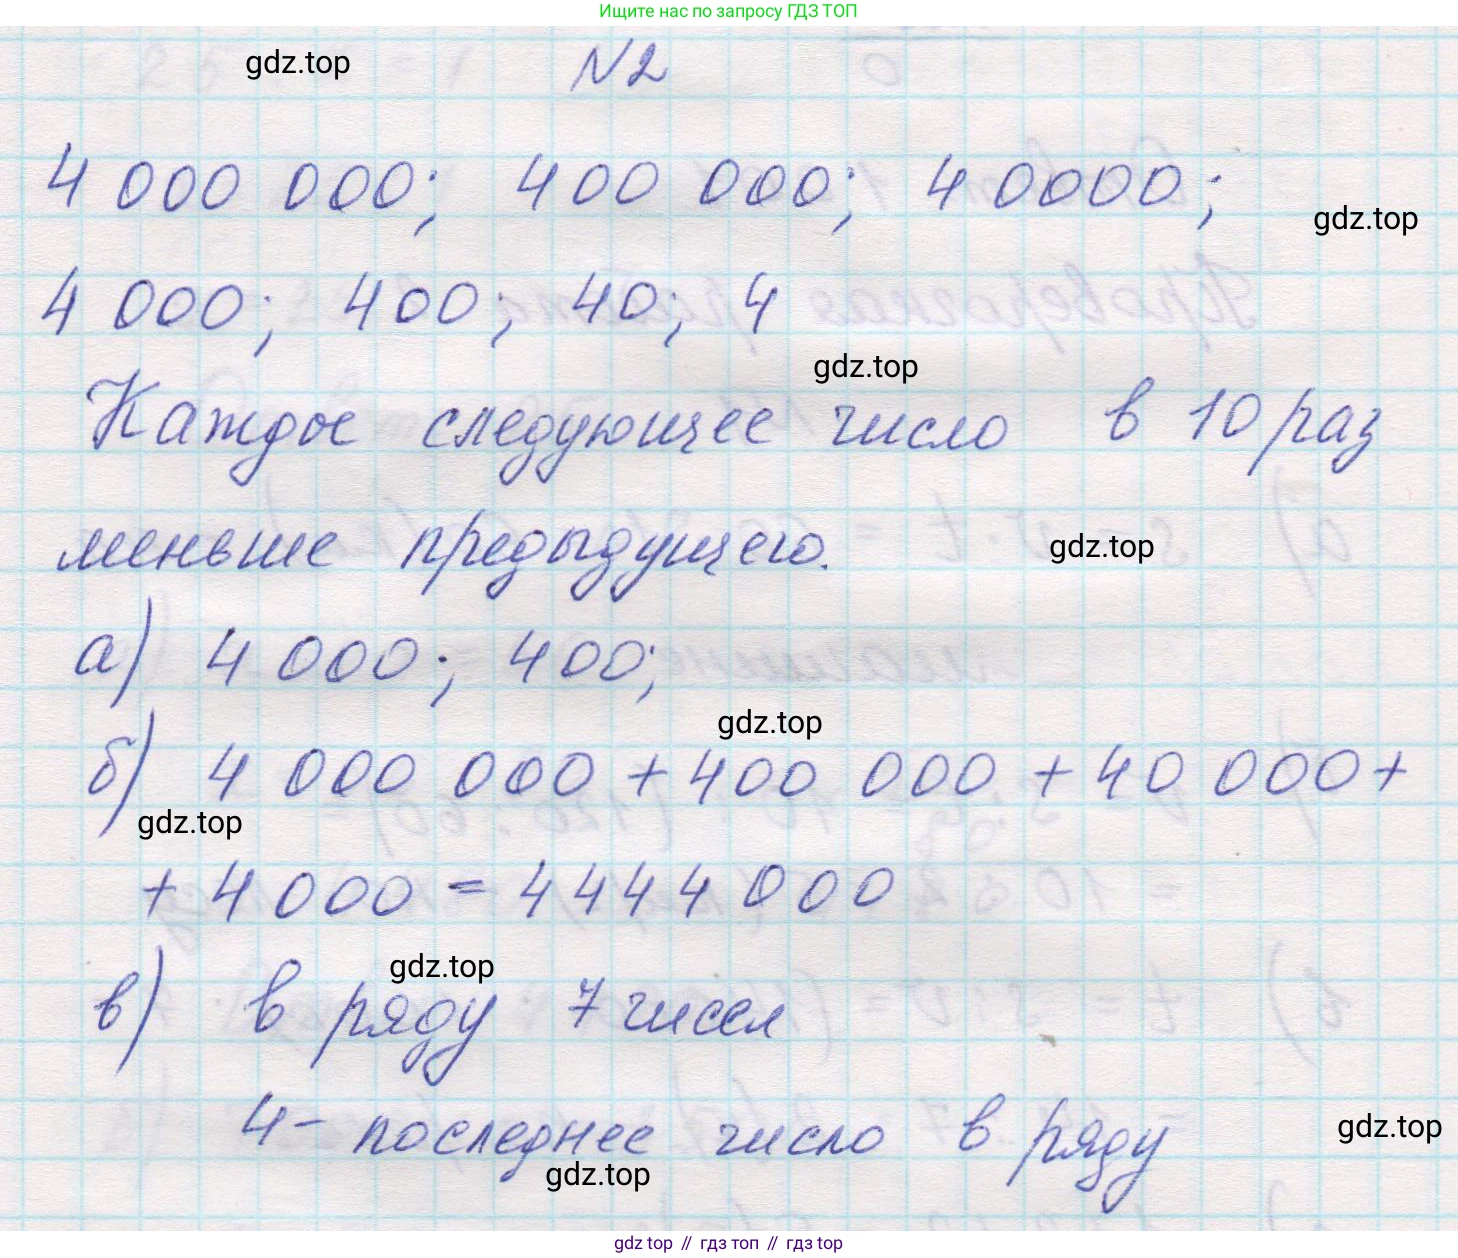 Ищите нас по запросу ГДЗ ТОП
gdz.top
N2
4 000 000; 400 000; 40000;
gdz.top
4 000; 400; 40; 4
gdz.top
Каждое следующее число в 10 раз
меньше предыдущего.
gdz.top
а) 4 000; 400;
gdz.top
б) 4 000 000 + 400 000 + 40 000 +
gdz.top
+ 4 000 = 4444 000
gdz.top
в) в ряду 7 чисел
4 - последнее число в ряду
gdz.top
gdz.top
gdz top // гдз топ // gdz top